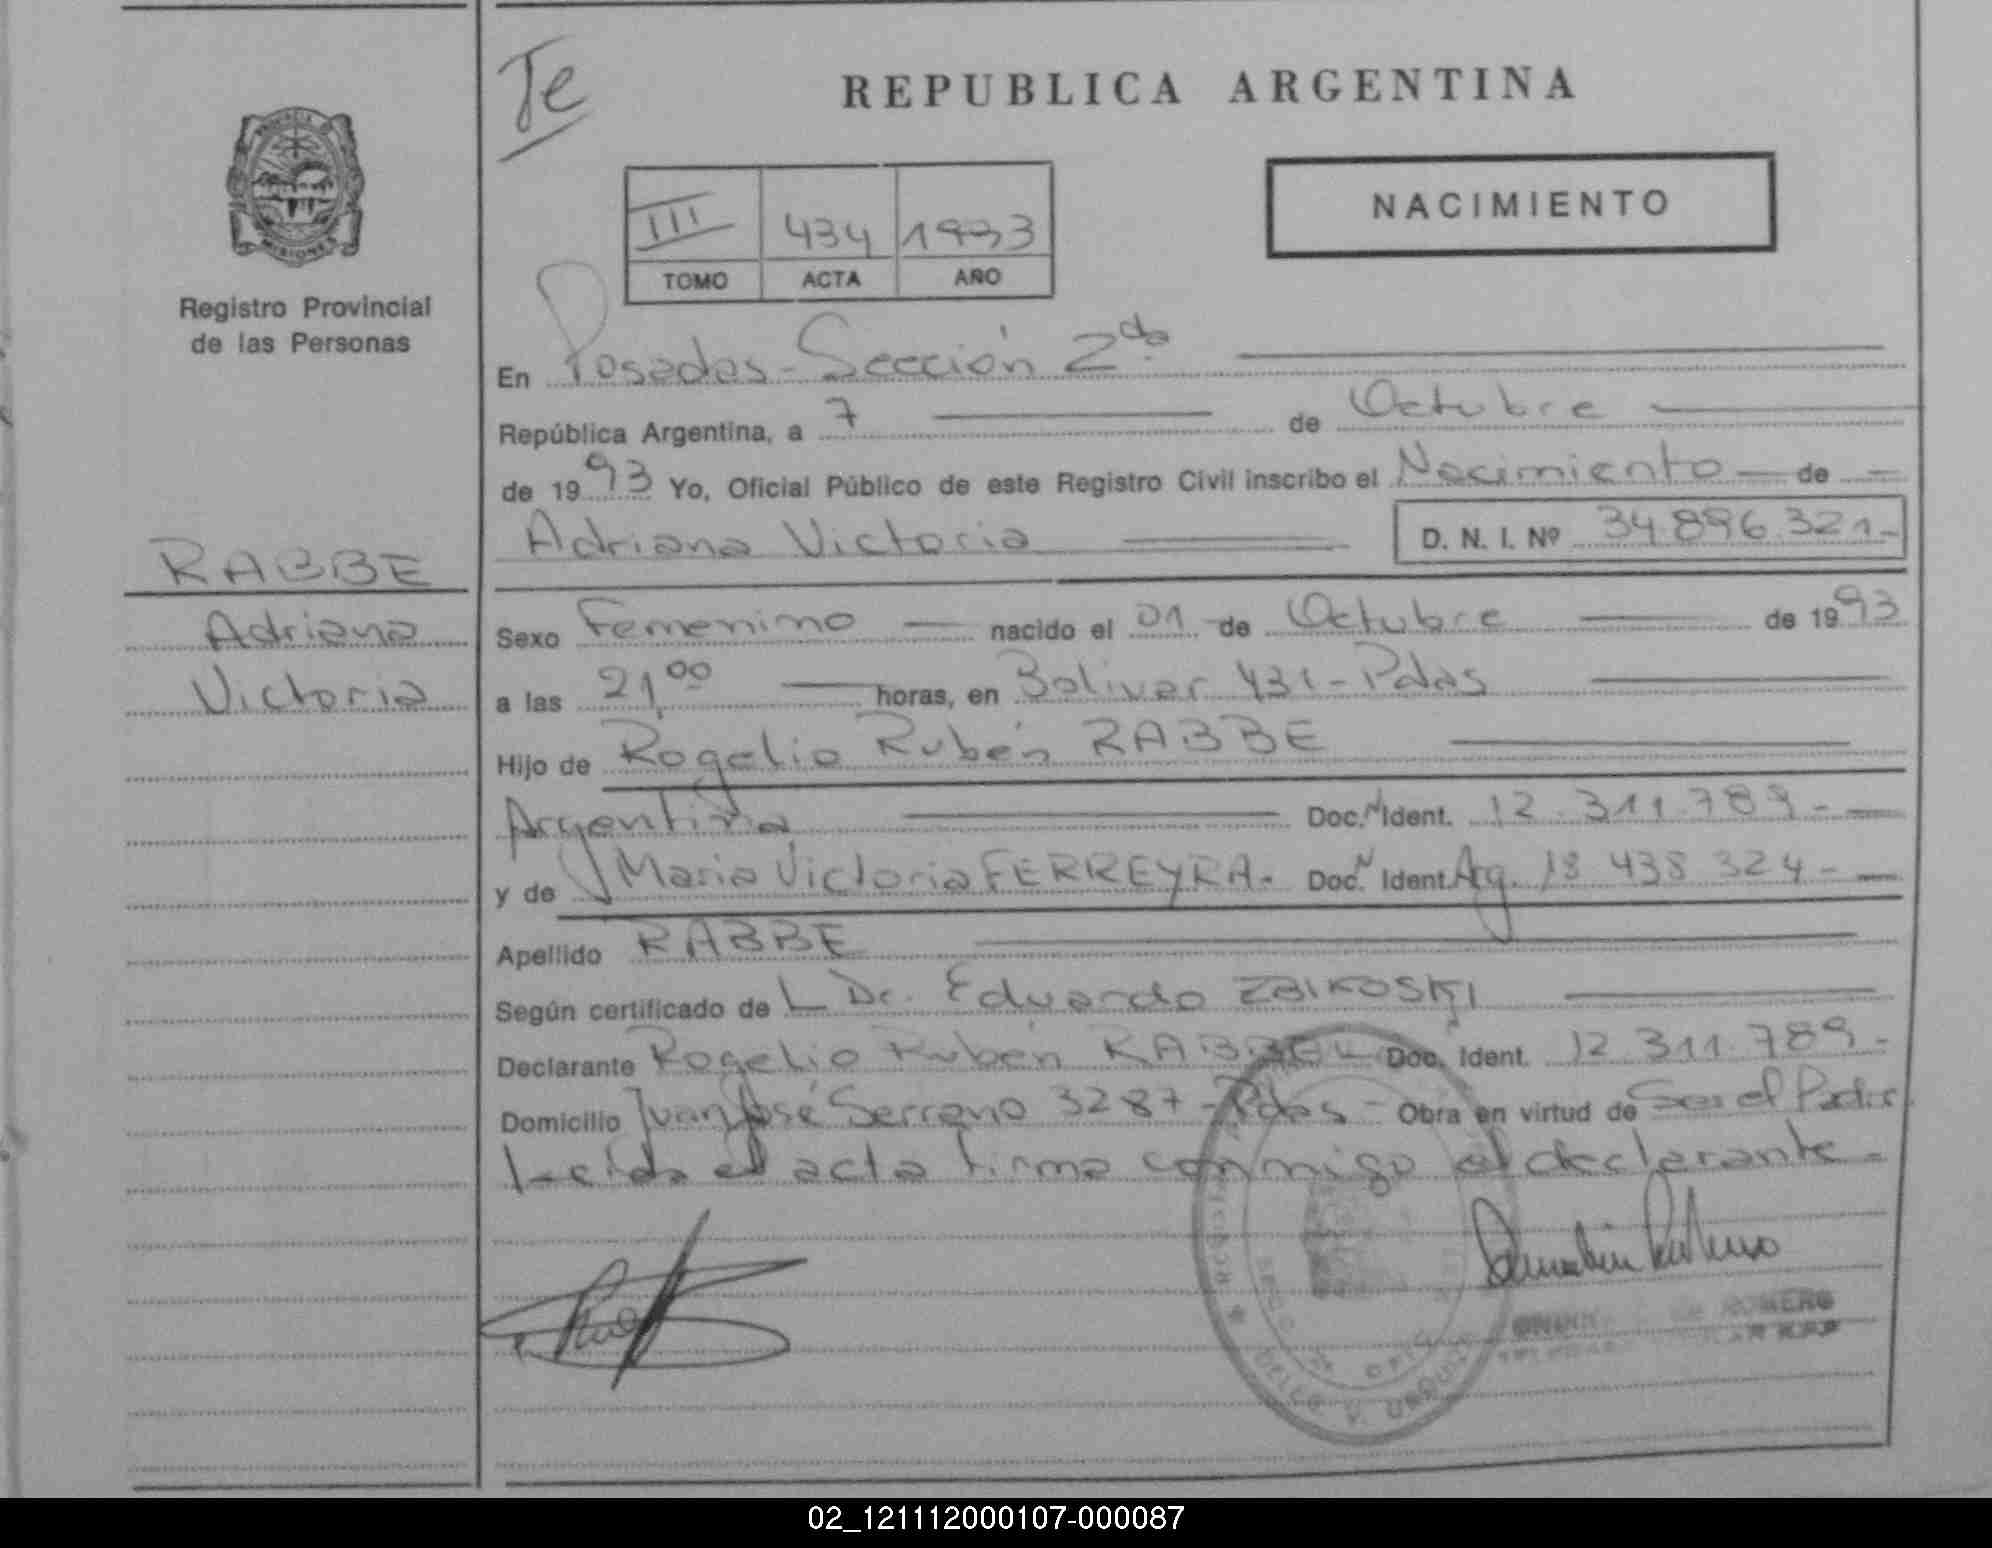 Te
REPUBLICA ARGENTINA
NACIMIENTO
III 434 1993
TOMO ACTA AÑO
MISIONES
Registro Provincial
de las Personas
En Posadas - Sección 2da
República Argentina, a 7 de Octubre
de 1993 Yo, Oficial Público de este Registro Civil inscribo el Nacimiento de
Adriana Victoria D. N. I. Nº 34.896.321-
RABBE
Adriana
Victoria
Sexo Femenino nacido el 01 de Octubre de 1993
a las 21,00 horas, en Bolivar 431 - Pdas
Hijo de Rogelio Rubén RABBE
Argentina Doc. N Ident. 12.311.789-
y de Maria Victoria FERREYRA. Doc. N Ident. Arg. 18 438 324-
Apellido RABBE
Según certificado de Dr. Eduardo ZBIKOSKI
Declarante Rogelio Rubén RABBE Doc. Ident. 12.311.789-
Domicilio Juan José Serrano 3287 - Pdas - Obra en virtud de Ser el Padre
Leída el acta firma conmigo el declarante-
ROMERO
02_121112000107-000087